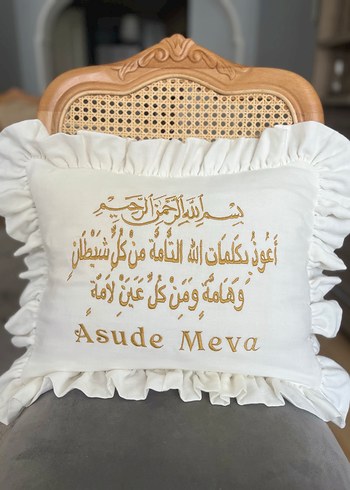 بِسْمِ اللهِ الرَّحْمٰنِ الرَّحِيمِ
أَعُوذُ بِكَلِمَاتِ اللهِ التَّامَّةِ مِنْ كُلِّ شَيْطَانٍ
وَهَامَّةٍ وَمِنْ كُلِّ عَيْنٍ لَامَّةٍ
Asude Meva